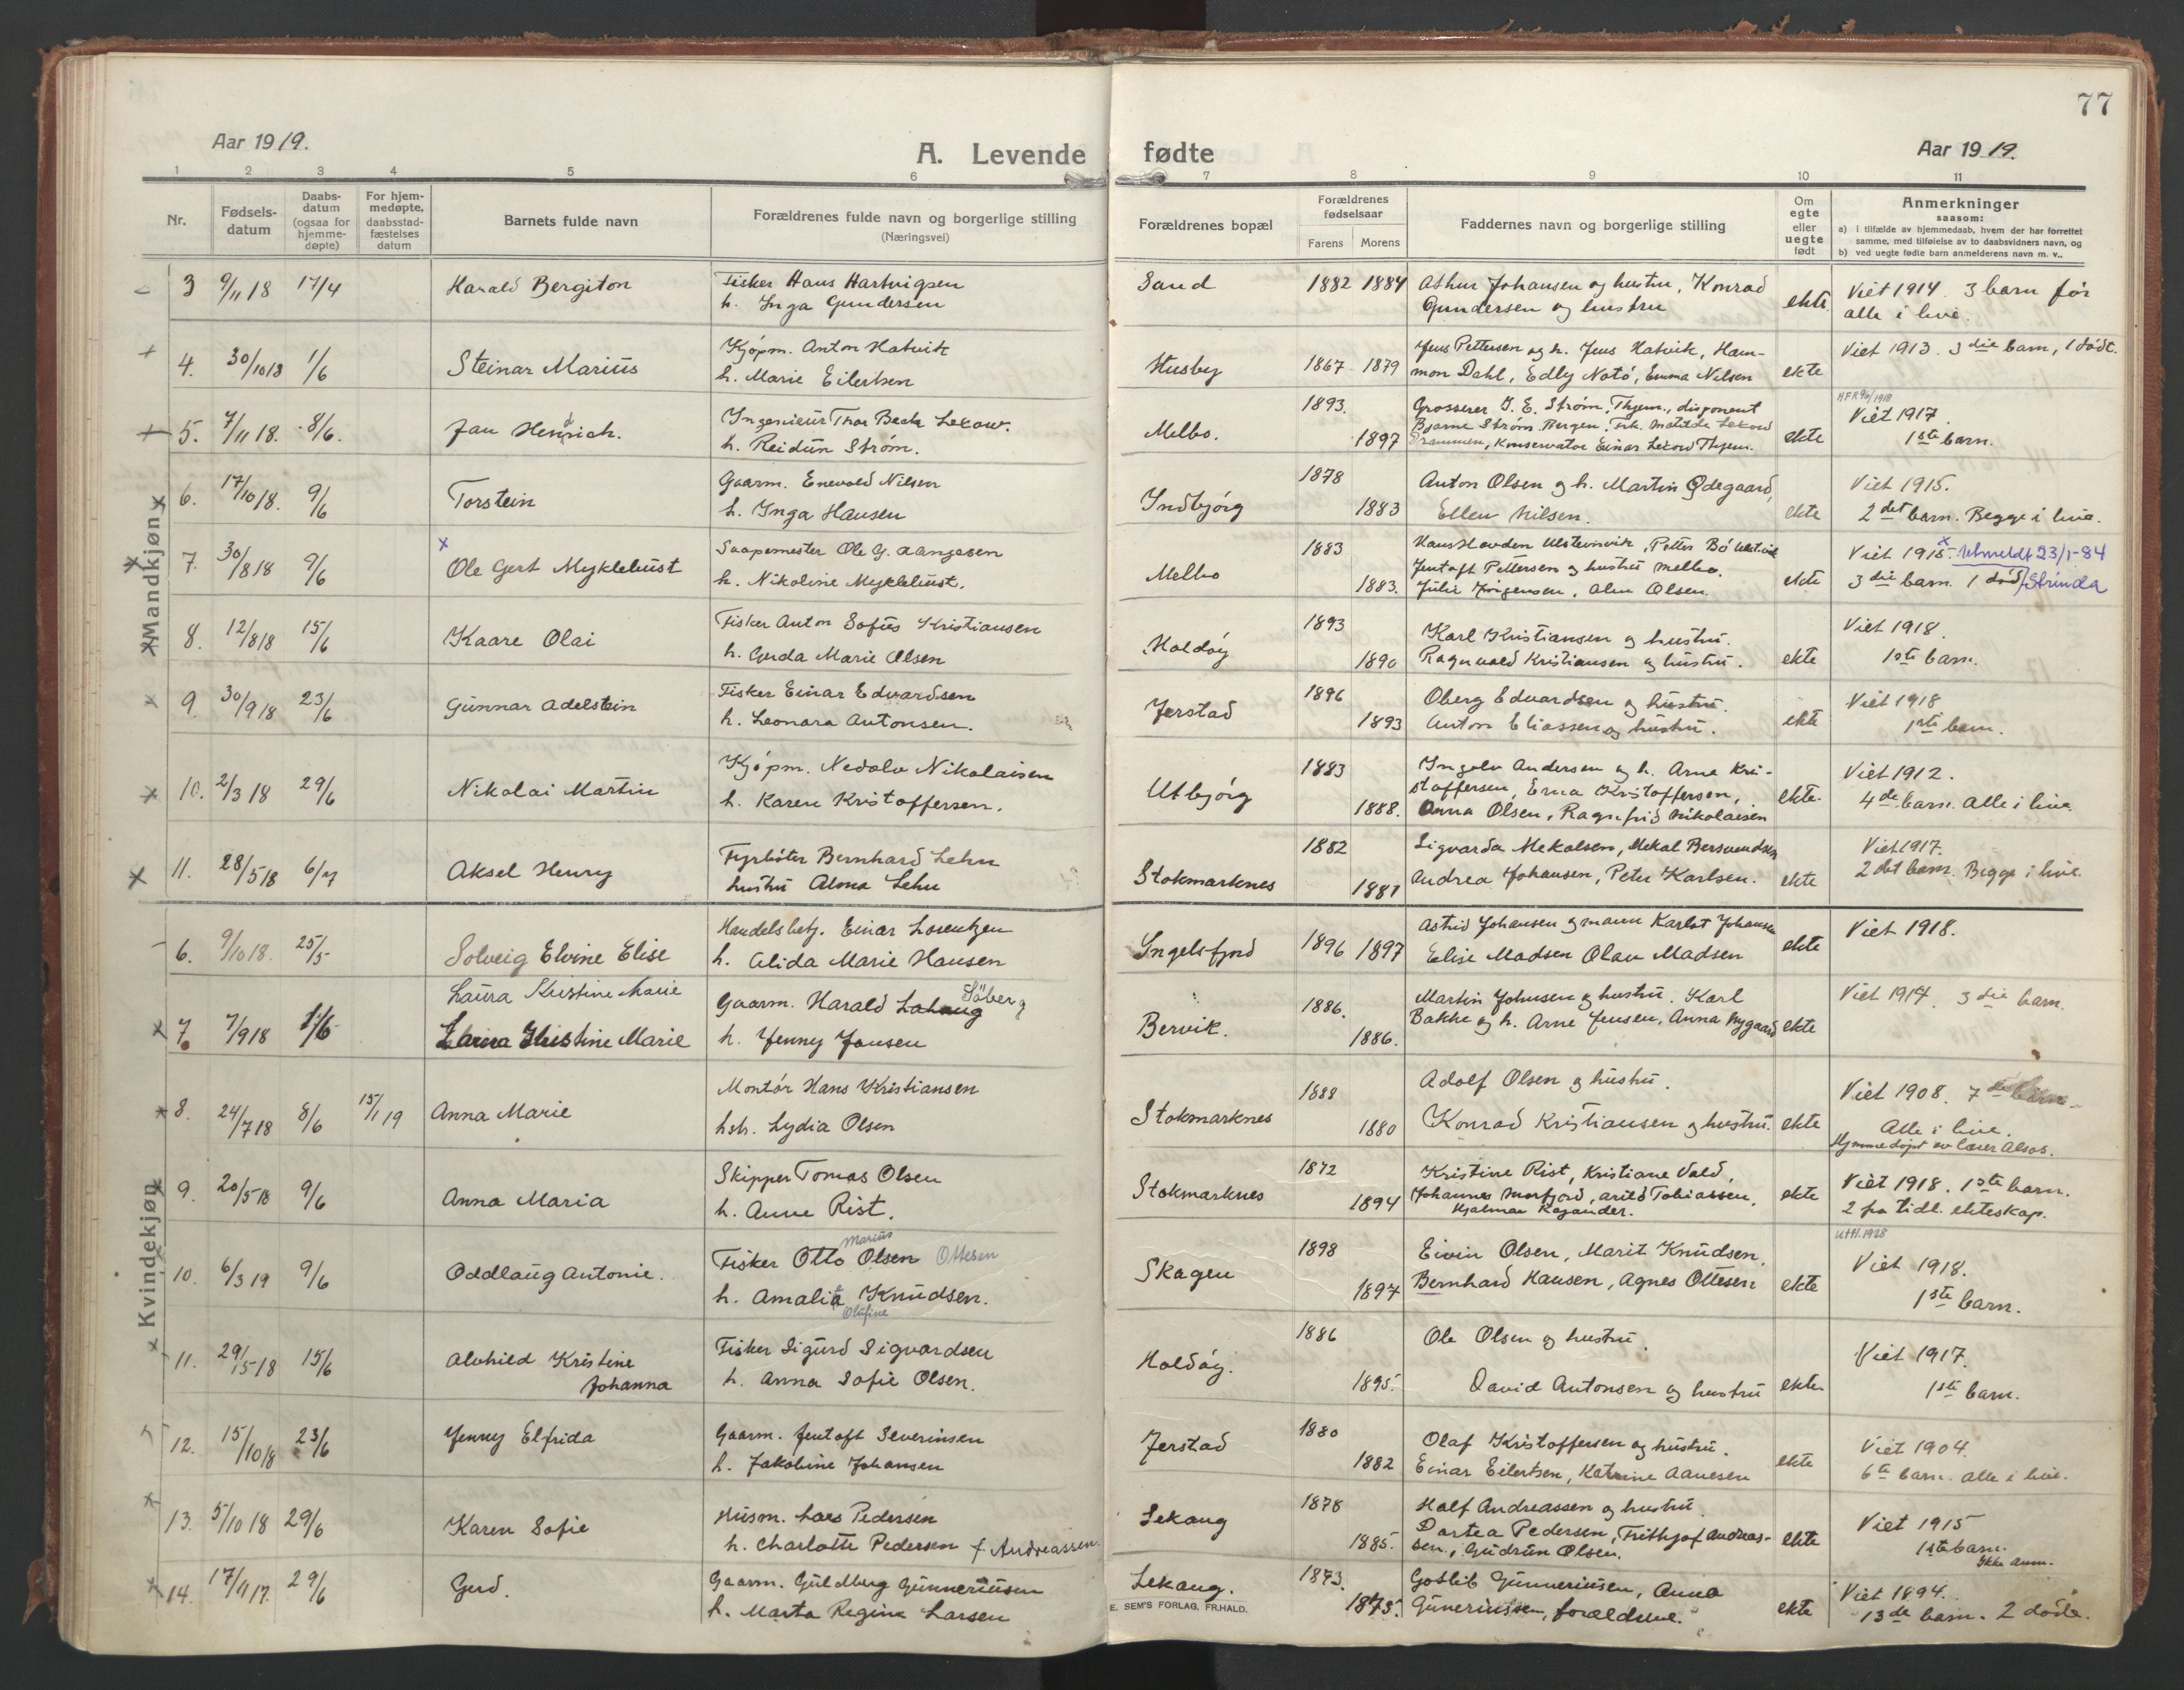 77
Aar 1919.
A. Levende fødte
Aar 1919.
1 2 3 4 5 6 7 8 9 10 11
Nr.
Fødsels-
datum
Daabs-
datum
(ogsaa for
hjemme-
døpte)
For hjem-
medøpte,
daabsstad-
fæstelses
datum
Barnets fulde navn
Forældrenes fulde navn og borgerlige stilling
(Næringsvei)
Forældrenes bopæl
Forældrenes
fødselsaar
Farens Morens
Faddernes navn og borgerlige stilling
Om
egte
eller
uegte
født
Anmerkninger
saasom:
a) i tilfælde av hjemmedaab, hvem der har forrettet
samme, med tilføielse av to daabsvidners navn, og
b) ved uegte fødte barn anmelderens navn m. v..
Mandkjøn
3 9/11 18 17/4 Harald Bergiton
Fisker Hans Hartvigsen
h. Inga Gundersen
Sand 1882 1884
Athur Johansen og hustru, Konrad
Gundersen og hustru
ekte
Viet 1914. 3 barn før
alle i live.
4. 30/10 18 1/6 Steinar Marius
Kjøpm. Anton Hatvik
h. Marie Eilertsen
Husby 1867 1879
Jens Pettersen og h. Jens Hatvik, Ham-
mon Dahl, Edly Notø, Emma Nilsen
ekte
Viet 1913. 3die barn, 1 dødt.
5. 7/11 18. 8/6. Jan Henrich.
Ingeniør Thor Beck Lexow.
h. Reidun Strøm.
Melbo. 1893. 1897
Grosserer J. E. Strøm, Thjem., disponent
Bjarne Strøm Bergen, Frk. Matilde Lexow
Drammen, Konservator Einar Lexow Thjem.
ekte
Viet 1917.
1ste barn.
6. 17/10 18. 9/6 Torstein
Gaarm. Enevold Nilsen
h. Inga Hansen
Indbjørg 1878 1883
Anton Olsen og h. Martin Ødegaard,
Ellen Nilsen.
ekte
Viet 1915.
2det barn. Begge i live.
7. 30/8 18 9/6 x Ole Gert Myklebust
Saapemester Ole G. Aangesen
h. Nikoline Myklebust.
Melbo 1883 1883.
Hans Hovden Ulsteinvik, Petter Bø Ulstvik
Jentoft Pettersen og hustru Melbo.
Julie Jørgensen, Alm Olsen.
ekte
Viet 1915 x Utmeldt 23/1-84
3die barn. 1 død / Strinda
8. 12/8 18 15/6 Kaare Olai
Fisker Anton Sofus Kristiansen
h. Gerda Marie Olsen
Holdøy 1893 1890
Karl Kristiansen og hustru.
Ragnvald Kristiansen og hustru.
ekte
Viet 1918.
1ste barn.
9. 30/9 18 23/6 Gunnar Adelstein
Fisker Einar Edvardsen
h. Leonora Antonsen.
Jerstad 1896 1893
Oberg Edvardsen og hustru.
Anton Eliassen og hustru.
ekte
Viet 1918
1ste barn.
10. 2/3 18 29/6 Nikolai Martin
Kjøpm. Nedolv Nikolaisen
h. Karen Kristoffersen.
Utbjørg 1883 1888.
Ingolv Andersen og h. Arne Kri-
stoffersen, Erna Kristoffersen,
Anna Olsen, Ragnfrid Nikolaisen
ekte.
Viet 1912.
4de barn. Alle i live.
11. 28/5 18 6/7 Aksel Henry
Fyrbøter Bernhard Lehn
hustru Alma Lehn
Stokmarknes 1882 1881
Sigvarda Mekalsen, Mekal Bersvendsen
Andrea Johansen, Peter Karlsen.
ekte
Viet 1917.
2det barn. Begge i live.
Kvindekjøn
6. 9/10 18. 25/5 Solveig Elvine Elise
Handelsbetj. Einar Lorentzen
h. Alida Marie Hansen
Ingelsfjord 1896 1897
Astrid Johansen og mann Karlot Johansen
Elise Madsen Olav Madsen
ekte
Viet 1918.
7. 7/9 18 1/6 Laura Kristine Marie
Laura Kristine Marie
Gaarm. Harald Lahaug Søberg
h. Jenny Jensen
Bervik. 1886. 1886.
Martin Johnsen og hustru. Karl
Bakke og h. Arne Jensen, Anna Nygaard
ekte
Viet 1917. 3die barn.
8. 24/7 18 8/6 15/1 19 Anna Marie
Montør Hans Kristiansen
hst. Lydia Olsen
Stokmarknes 1888 1880
Adolf Olsen og hustru.
Konrad Kristiansen og hustru.
ekte
Viet 1908. 7de barn
Alle i live.
Hjemmedøpt av lærer Alsos.
9. 20/5 18 9/6 Anna Maria
Skipper Tomas Olsen
h. Anne Rist.
Stokmarknes 1872 1894
Kristine Rist, Kristiane Vold,
Johannes Morfjord, Arild Tobiassen,
Hjalmar Kajander.
ekte
Viet 1918. 1ste barn.
2 fra tidl. ekteskap.
10. 6/3 19 9/6 Oddlaug Antonie.
Fisker Otto Marius Olsen Ottesen
h. Amalia Knudsen.
Olufine
Skagen 1898 1897
Eivin Olsen, Marit Knudsen,
Bernhard Hansen, Agnes Ottesen
ekte
Utfl. 1928
Viet 1918.
1ste barn.
11. 29/5 18 15/6 Alvhild Kristine
Johanna
Fisker Sigurd Sigvardsen
h. Anna Sofie Olsen.
Holdøy. 1886 1895.
Ole Olsen og hustru.
David Antonsen og hustru
ekte
Viet 1917.
1ste barn.
12. 15/10 18 23/6 Jenny Elfrida
Gaarm. Jentoft Severinsen
h. Jakobine Johansen
Jerstad 1880 1882
Olaf Kristoffersen og hustru.
Einar Eilertsen, Katrine Aanesen
ekte
Viet 1904.
6te barn. Alle i live.
13. 5/10 18 29/6 Karen Sofie
Husm. Lars Pedersen
h. Charlotte Pedersen f. Andreassen.
Lekang 1878 1885.
Half Andreassen og hustru.
Dortea Pedersen, Frithjof Andreas-
sen, Gudrun Olsen.
ekte
Viet 1915
1ste barn.
Ikke anm.
14. 17/11 17. 29/6 Gerd.
Gaarm. Guldberg Gunneriussen
h. Marta Regine Larsen
Lekang. 1873. 1875.
Gotlib Gunneriusen, Anna
Guneriussen, forældrene.
ekte
Viet 1894.
13de barn. 2 døde.
E. SEM'S FORLAG, FR.HALD.